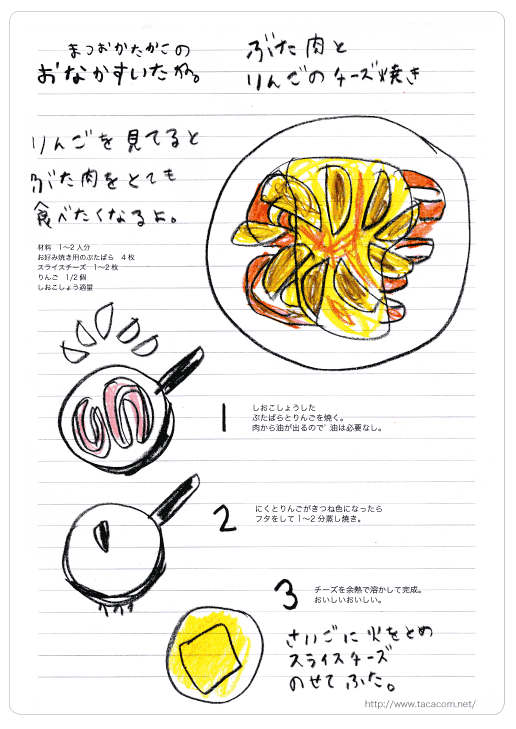 まつおかたかこの
おなかすいたね。
ぶた肉と
りんごのチーズ焼き
りんごを見てると
ぶた肉をとても
食べたくなるよ。
材料 1〜2人分
お好み焼き用のぶたばら 4枚
スライスチーズ 1〜2枚
りんご 1/2個
しおこしょう適量
1
しおこしょうした
ぶたばらとりんごを焼く。
肉から油が出るので゛油は必要なし。
2
にくとりんごがきつね色になったら
フタをして1〜2分蒸し焼き。
3
チーズを余熱で溶かして完成。
おいしいおいしい。
さいごに火をとめ
スライスチーズ
のせてふた。
http://www.tacacom.net/